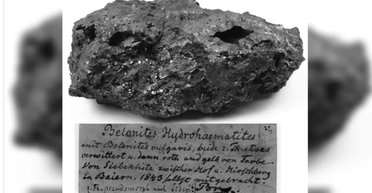 Belonites Hydrohaematites
mit Belonites vulgaris, beide z. Th. etwas
verwittert u. dann roth und gelb von Farbe.
Von Siebenhitz zwischen Hof u. Hirschberg
in Baiern. 1843 selbst mitgebracht.
z. Th. pseudomorph nach